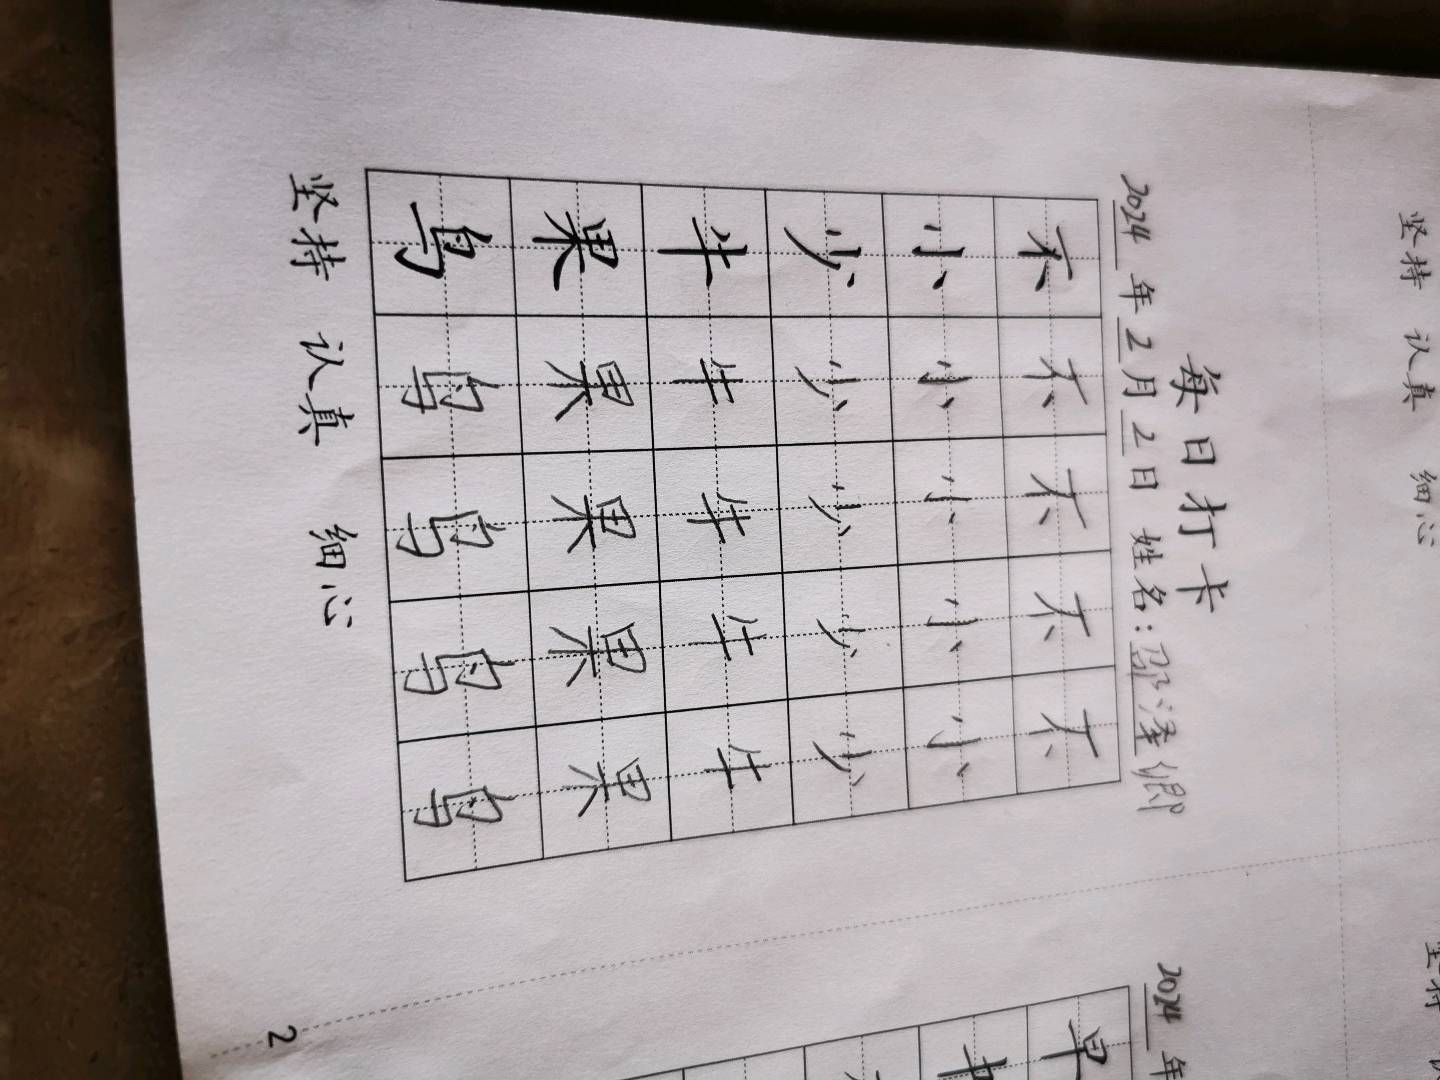 每日打卡
2024年2月2日 姓名:邵泽卿
不不不不不
小小小小小
少少少少少
牛牛牛牛牛
果果果果果
鸟鸟鸟鸟鸟
坚持 认真 细心
坚持 认真 细心
2024年
果
中
坚持 认
2